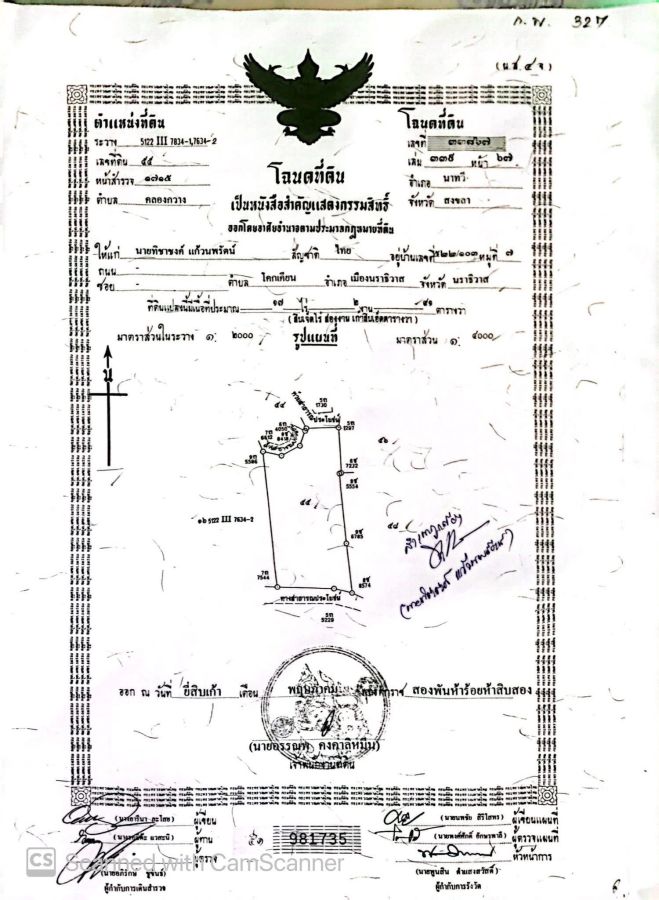 ก.พ. 327
(น.ส.๔ จ)
ตำแหน่งที่ดิน
ระวาง 5122 III 7834-1,7634-2
เลขที่ดิน ๔๔
หน้าสำรวจ ๑๗๑๕
ตำบล คลองกวาง
โฉนดที่ดิน
เลขที่ ๓๓๘๖๗
เล่ม ๓๓๙ หน้า ๖๗
อำเภอ นาทวี
จังหวัด สงขลา
โฉนดที่ดิน
เป็นหนังสือสำคัญแสดงกรรมสิทธิ์
ออกโดยอาศัยอำนาจตามประมวลกฎหมายที่ดิน
ให้แก่ นายทิชาชงค์ แก้วนพรัตน์ สัญชาติ ไทย อยู่บ้านเลขที่ ๕๒๒/๑๐๓ หมู่ที่ ๗
ถนน -
ซอย - ตำบล โคกเคียน อำเภอ เมืองนราธิวาส จังหวัด นราธิวาส
ที่ดินแปลงนี้มีเนื้อที่ประมาณ ๑๗ ไร่ ๒ งาน ๙๑ ตารางวา
(สิบเจ็ดไร่ สองงาน เก้าสิบเอ็ดตารางวา)
มาตราส่วนในระวาง ๑: ๒๐๐๐ รูปแผนที่ มาตราส่วน ๑: ๔๐๐๐
น
๔๔
ทางสาธารณประโยชน์
5ท
1730
5ท
1297
6ท
4050
7ท
6612
8ฑ
8418
9ท
5586
๔๖
6ฑ
7232
9ฑ
5554
๔๔
๑๖ 5122 III 7634-2
๔๘
9ฑ
6785
7ท
7544
8ฑ
8574
ทางสาธารณประโยชน์
5ท
5229
สำเนาถูกต้อง
ออก ณ วันที่ ยี่สิบเก้า เดือน พฤษภาคม พุทธศักราช สองพันห้าร้อยห้าสิบสอง
(นายอรรณพ คงคาลิหมีน)
เจ้าพนักงานที่ดิน
ผู้เขียน
ผู้ทาน
ผู้ตรวจ
ผู้กำกับการเดินสำรวจ
981735
(นายนพชัย สิริโสพร) ผู้เขียนแผนที่
(นายพงศ์ศักดิ์ อักษรพาลี) ผู้ตรวจแผนที่
หัวหน้าการ
(นายพูนสิน ดำแสงสวัสดิ์)
ผู้กำกับการรังวัด
CS Scanned with CamScanner